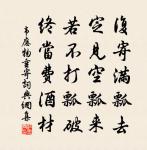 復寄滿瓢去
定見空瓢來
若不打瓢破
終當費酒材
韋應物重寄詞典網集